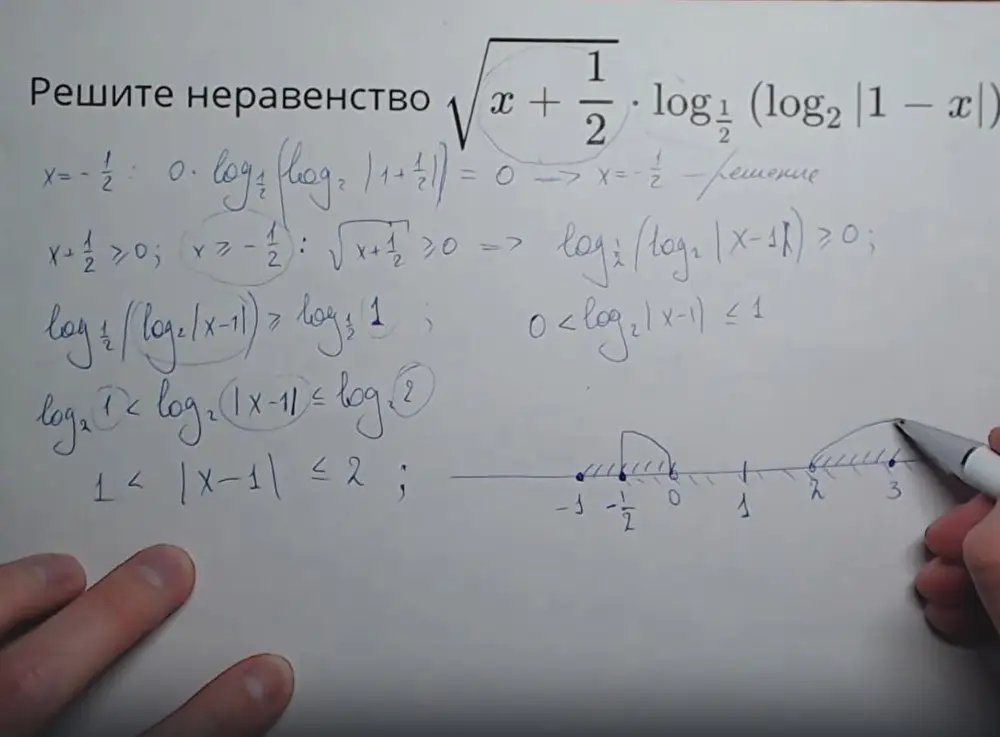 Решите неравенство √(x + 1/2) · log_{1/2} (log₂ |1 − x|)
x = -1/2 : 0 · log_{1/2} (log₂ |1 + 1/2|) = 0 —> x = -1/2 – решение
x + 1/2 ≥ 0; x ≥ -1/2 : √(x + 1/2) ≥ 0 => log_{1/2} (log₂ |x-1|) ≥ 0;
log_{1/2} (log₂ |x-1|) ≥ log_{1/2} 1 ; 0 < log₂ |x-1| ≤ 1
log₂ 1 < log₂ |x-1| ≤ log₂ 2
1 < |x-1| ≤ 2 ;
-1 -1/2 0 1 2 3